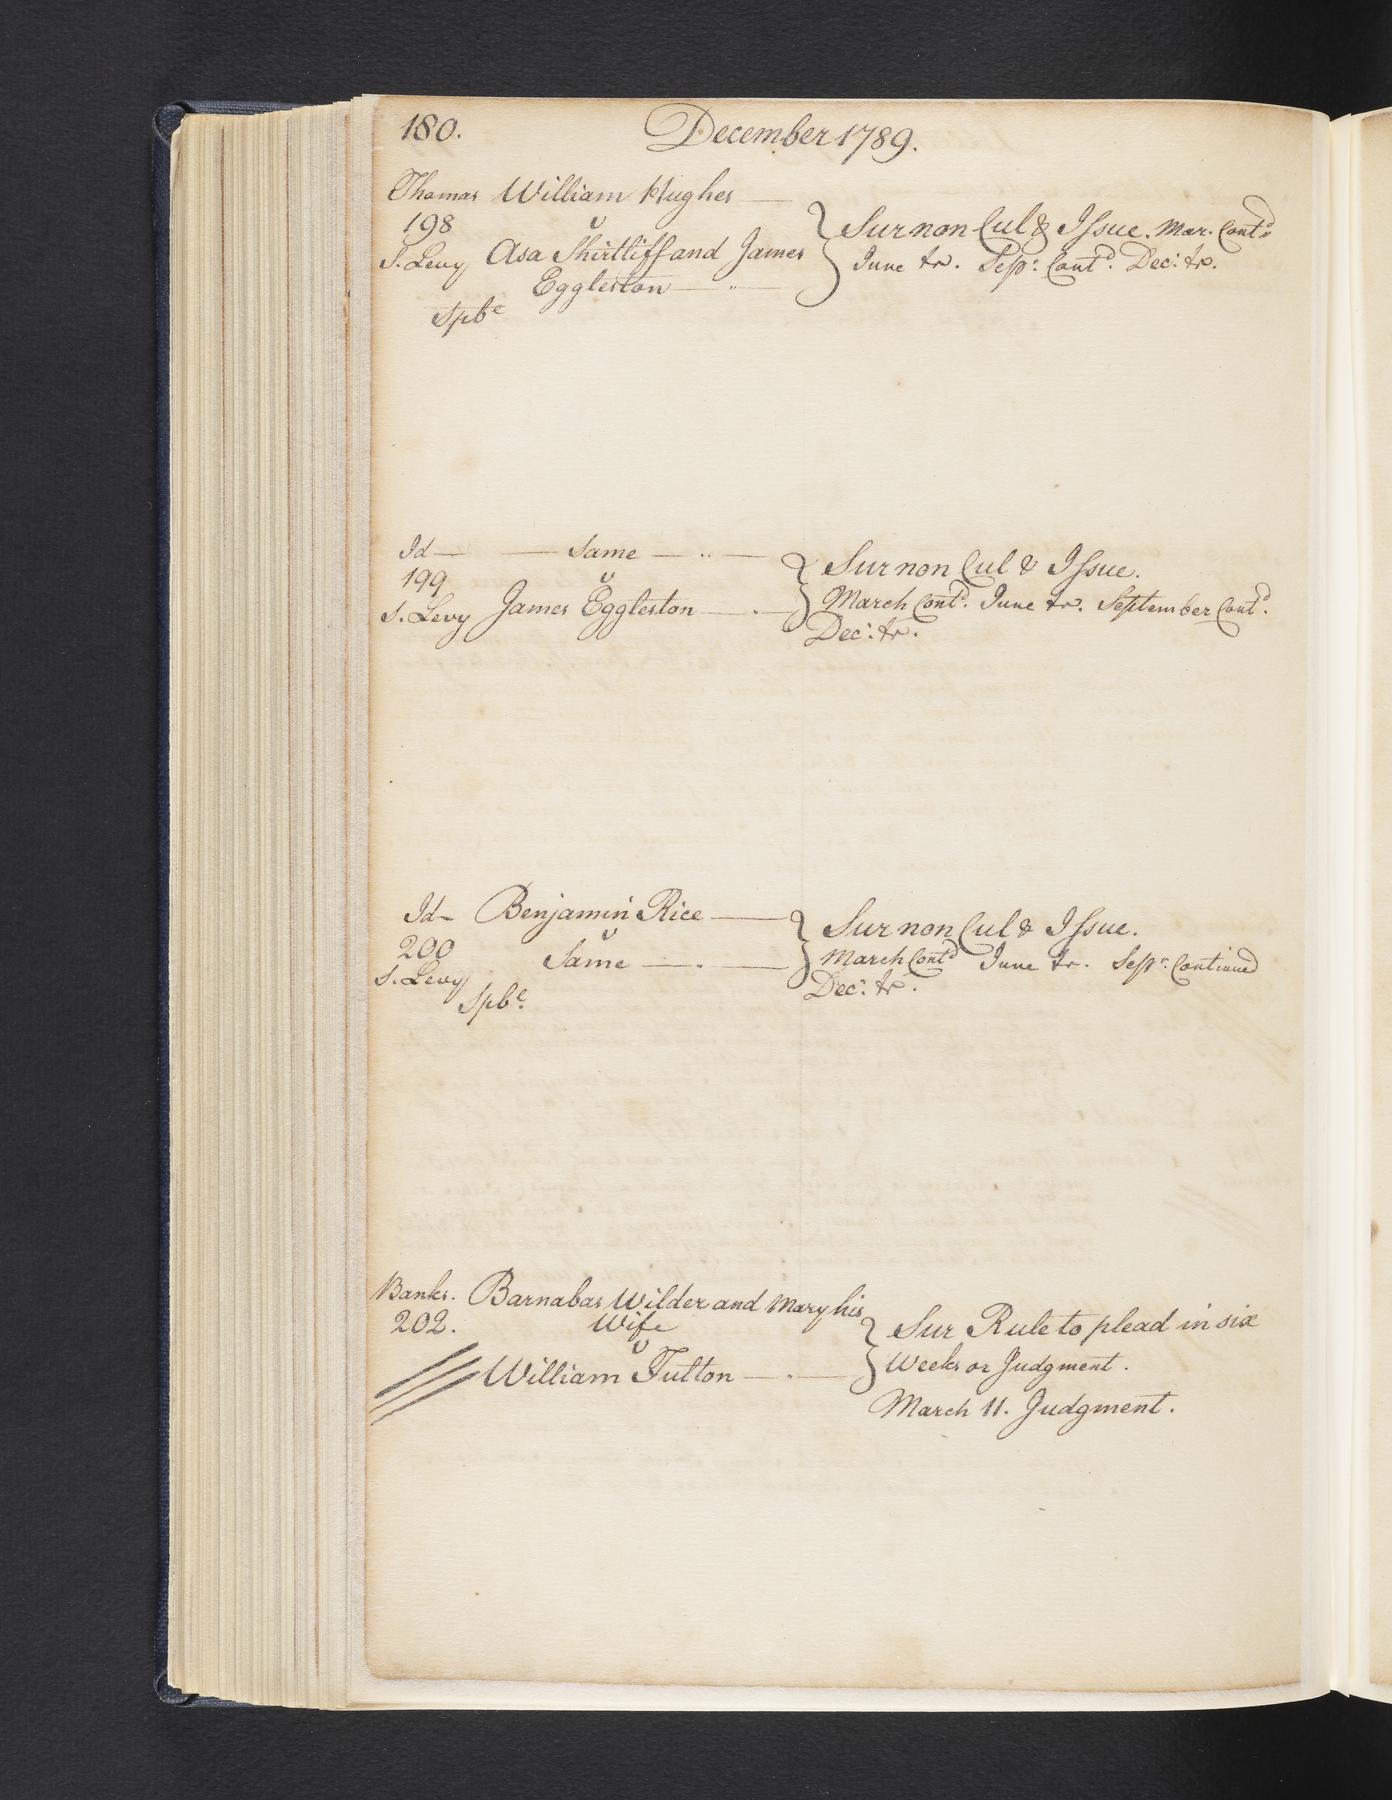 180. December 1789.
Thomas William Hughes —
198 v
S. Levy Asa Shirtliff and James
Eggleston — " —
Spbᵉ
Sur non Cul & Issue. Mar. Contᵈ
June tr. Sepʳ: Contᵈ. Decʳ: tr.
Id — — Same — .. —
199 v
S. Levy James Eggleston — . —
Sur non Cul & Issue.
March Contᵈ. June tr. September Contᵈ.
Decʳ: tr.
Id — Benjamin Rice —
200 v
S. Levy Same — . —
Spbᵉ.
Sur non Cul & Issue.
March Contᵈ June tr. Sepʳ: Continued
Decʳ: tr.
Banks. Barnabas Wilder and Mary his
202. Wife
v
William Tutton — . —
Sur Rule to plead in six
Weeks or Judgment.
March 11. Judgment.